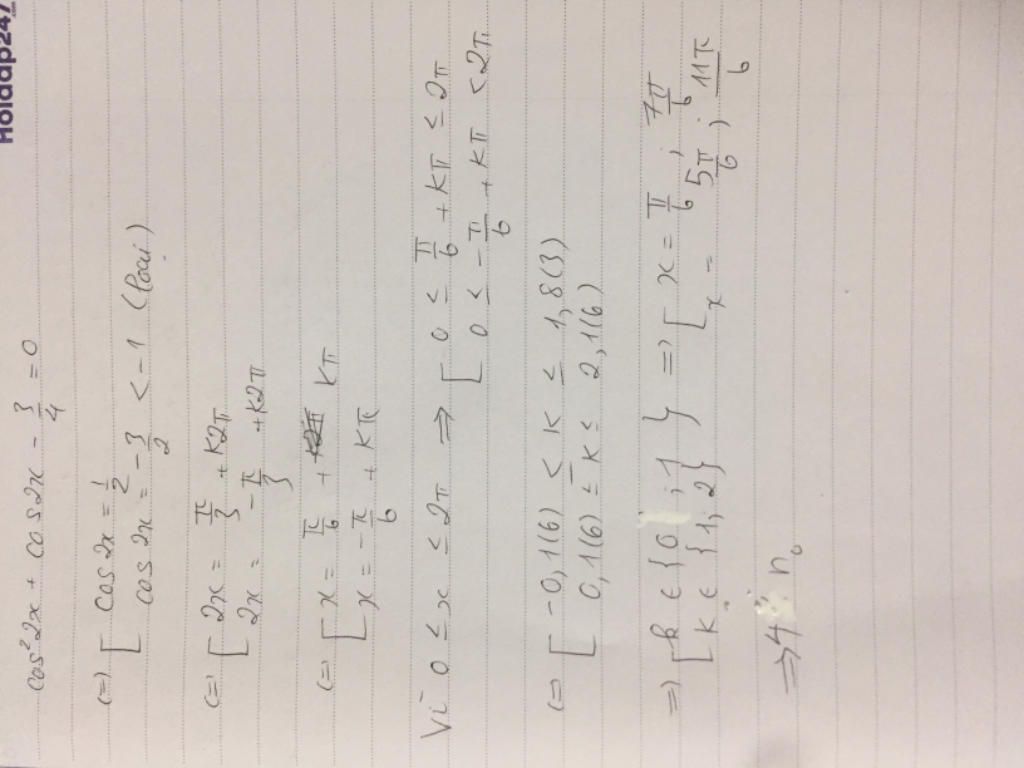 Hoidap247
cos²2x + cos2x - 3/4 = 0
(=) [ cos2x = 1/2
cos2x = -3/2 < -1 (loại)
(=) [ 2x = π/3 + k2π
2x = -π/3 + k2π
(=) [ x = π/6 + kπ
x = -π/6 + kπ
Vì 0 ≤ x ≤ 2π => [ 0 ≤ π/6 + kπ ≤ 2π
0 ≤ -π/6 + kπ ≤ 2π
(=) [ -0,1(6) < k ≤ 1,8(3)
0,1(6) ≤ k ≤ 2,1(6)
=) [ k ∈ {0;1} => [ x = π/6; 7π/6
k ∈ {1;2} x = 5π/6; 11π/6
=> 4 n₀